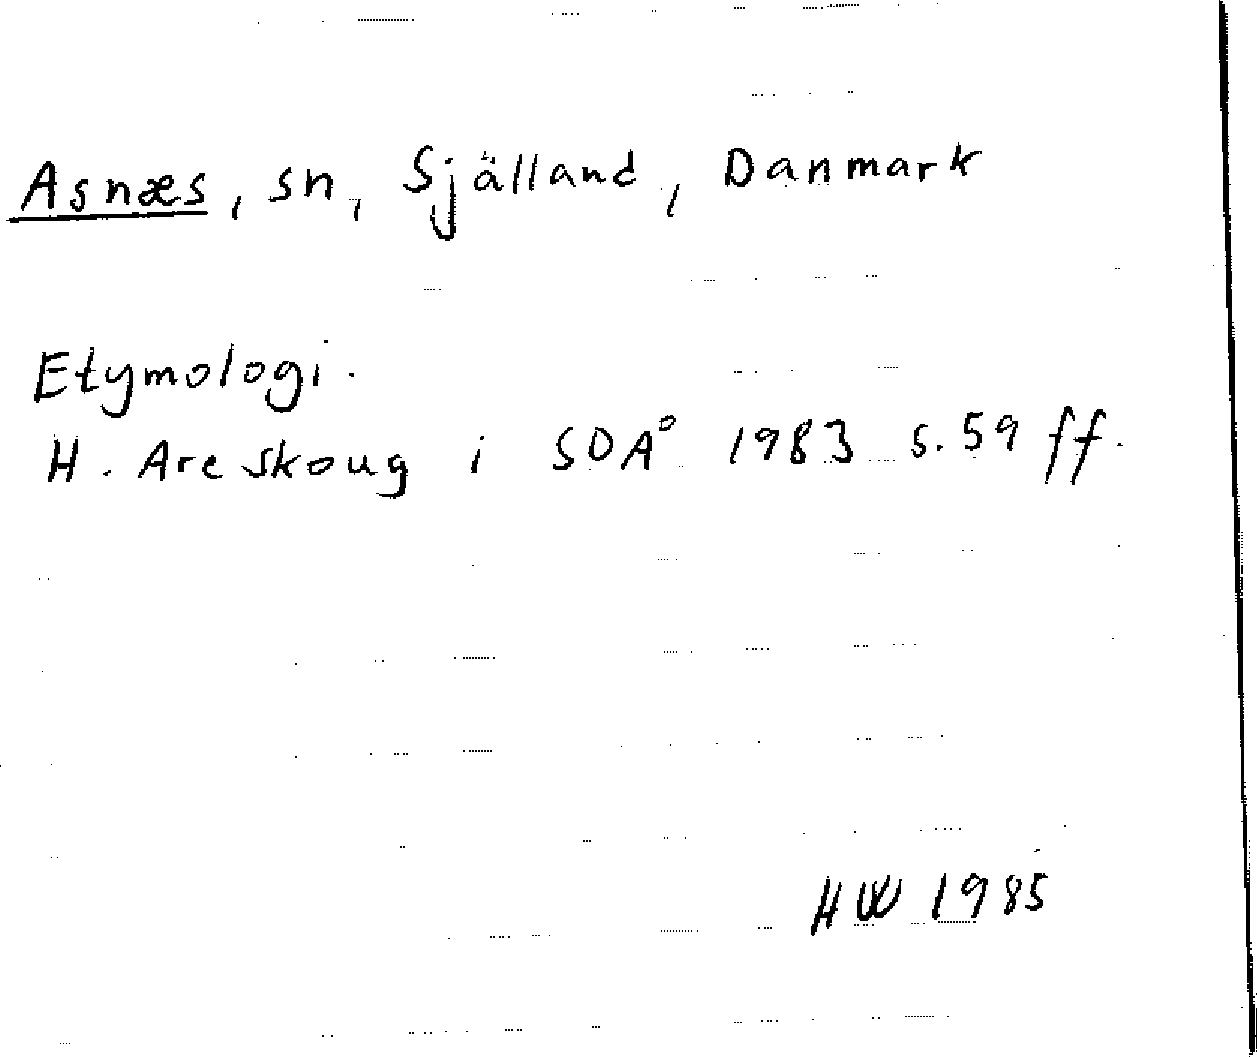 Asnæs, sn, Själland, Danmark
Etymologi.
H. Areskoug i SDÅ 1983 s. 59 ff.
HW 1985